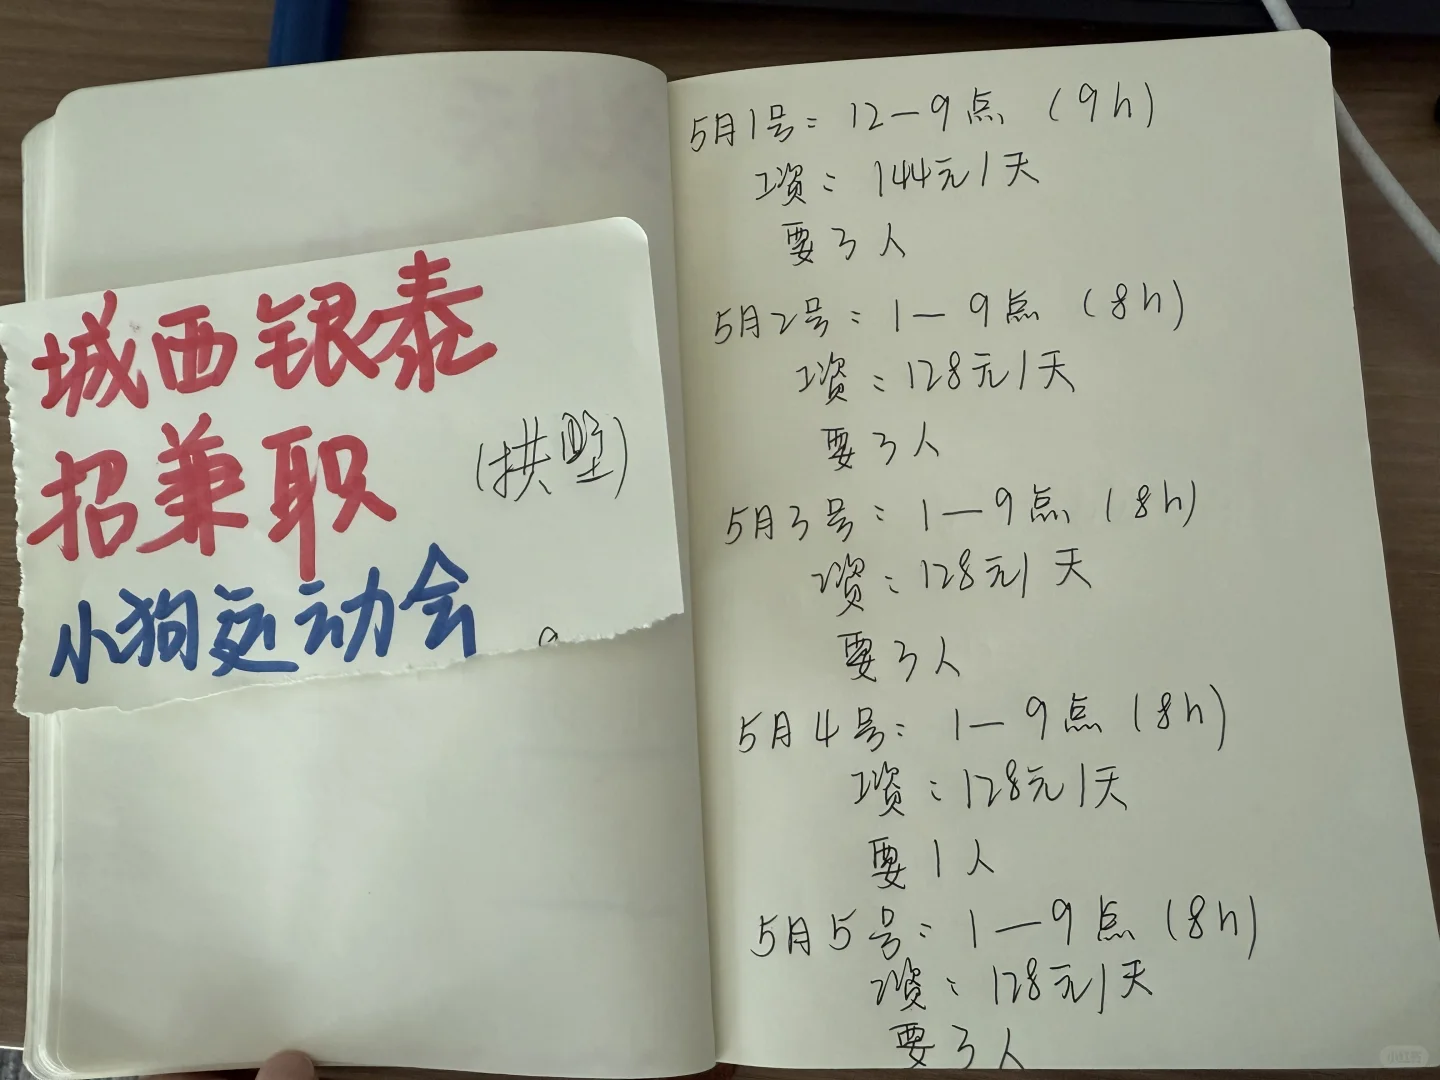 城西银泰
招兼职
(拱墅)
小狗运动会
5月1号: 12—9点 (9h)
工资: 144元/天
要3人
5月2号: 1—9点 (8h)
工资: 128元/天
要3人
5月3号: 1—9点 (8h)
工资: 128元/天
要3人
5月4号: 1—9点 (8h)
工资: 128元/天
要1人
5月5号: 1—9点 (8h)
工资: 128元/天
要3人
小红书